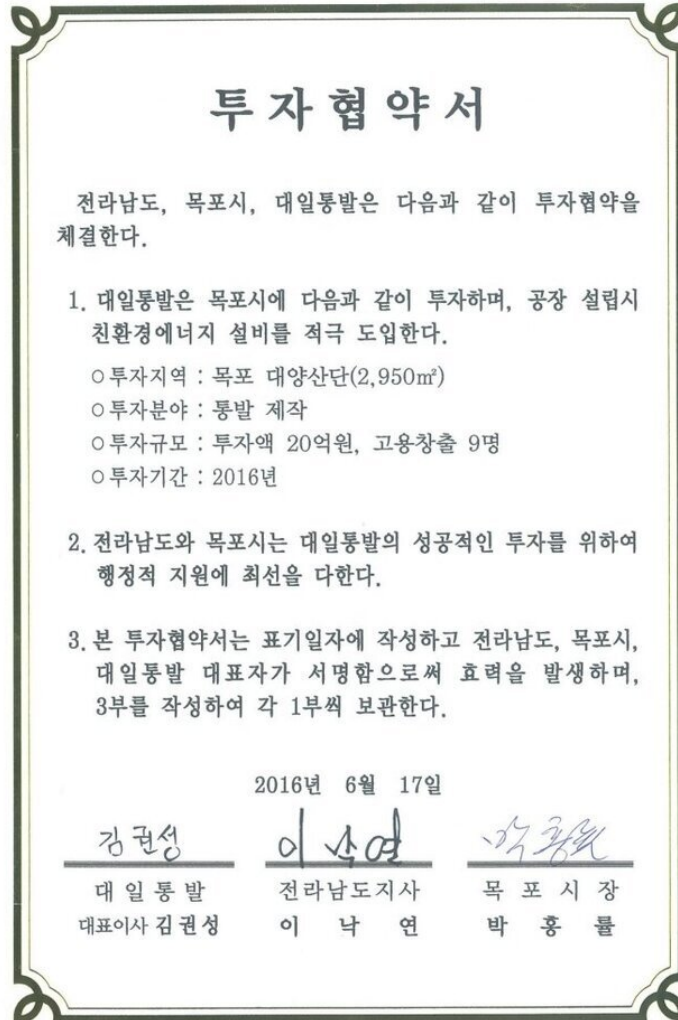 투자협약서
전라남도, 목포시, 대일통발은 다음과 같이 투자협약을
체결한다.
1. 대일통발은 목포시에 다음과 같이 투자하며, 공장 설립시
친환경에너지 설비를 적극 도입한다.
○투자지역 : 목포 대양산단(2,950㎡)
○투자분야 : 통발 제작
○투자규모 : 투자액 20억원, 고용창출 9명
○투자기간 : 2016년
2. 전라남도와 목포시는 대일통발의 성공적인 투자를 위하여
행정적 지원에 최선을 다한다.
3. 본 투자협약서는 표기일자에 작성하고 전라남도, 목포시,
대일통발 대표자가 서명함으로써 효력을 발생하며,
3부를 작성하여 각 1부씩 보관한다.
2016년 6월 17일
김권성 이낙연 박홍률
대일통발 전라남도지사 목포시장
대표이사 김권성 이낙연 박홍률